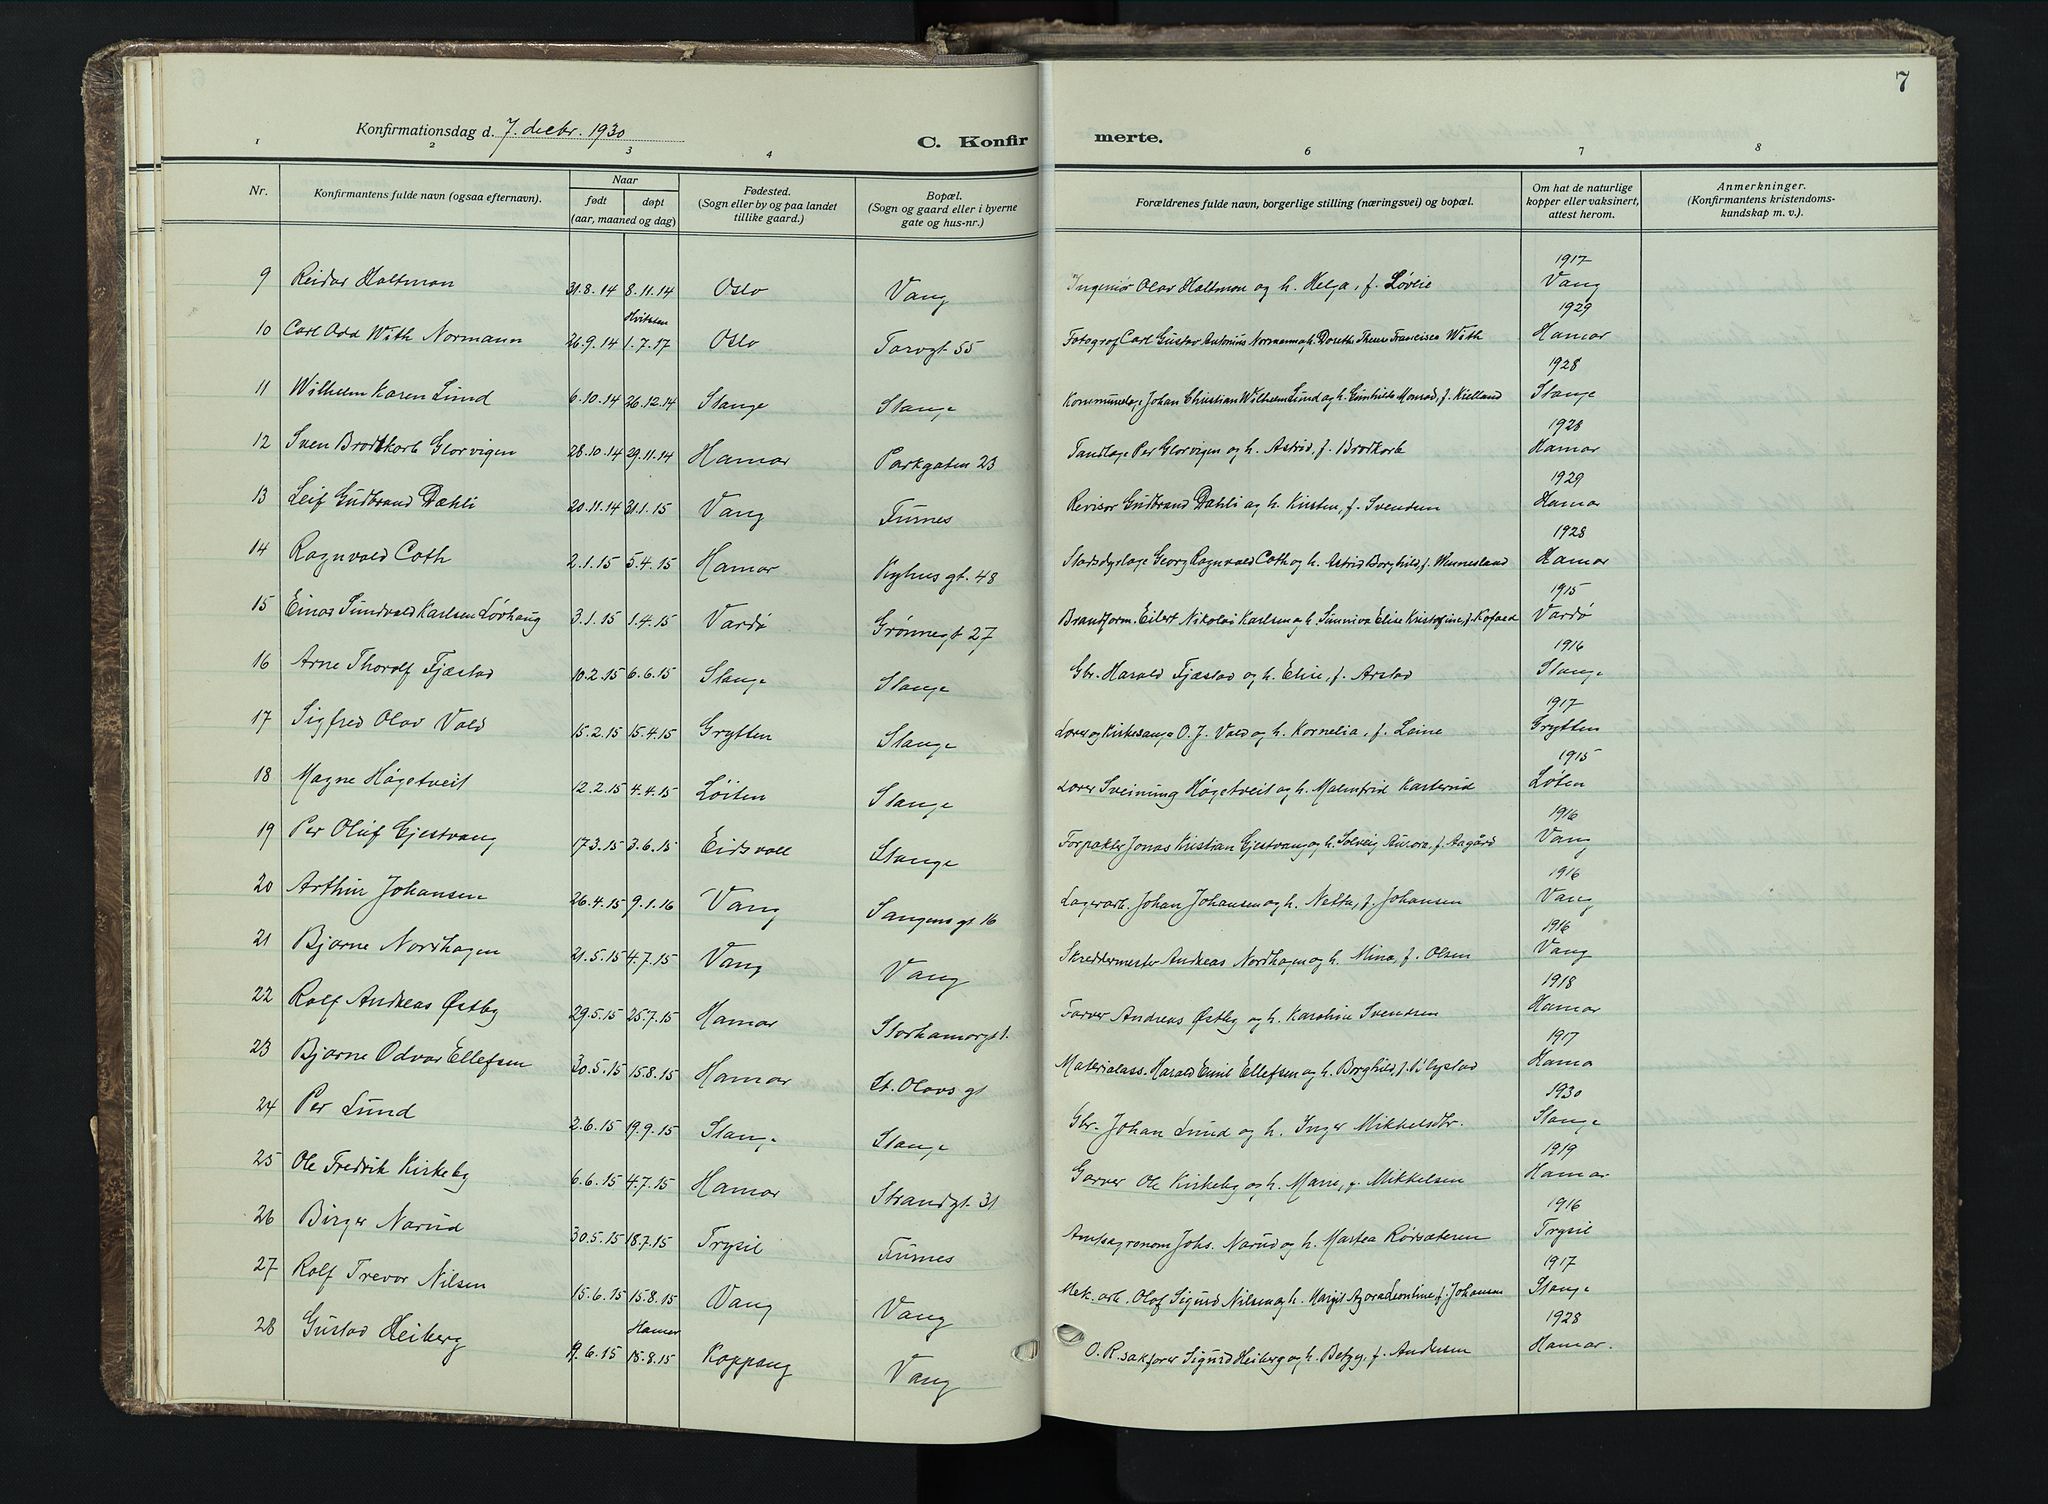 7
Konfirmationsdag d. 7. decbr. 1930
C. Konfirmerte.
1 2 3 4 6 7 8
Nr.
Konfirmantens fulde navn (ogsaa efternavn).
Naar
født døpt
(aar, maaned og dag)
Fødested.
(Sogn eller by og paa landet
tillike gaard.)
Bopæl.
(Sogn og gaard eller i byerne
gate og hus-nr.)
Forældrenes fulde navn, borgerlige stilling (næringsvei) og bopæl.
Om hat de naturlige
kopper eller vaksinert,
attest herom.
Anmerkninger.
(Konfirmantens kristendoms-
kundskap m. v.).
9 Reidar Holtmon 31.8.14 8.11.14 Oslo Vang Ingeniør Olav Holtmon og h. Helga, f. Løvlie 1917 Vang
10 Carl Odd With Normann 26.9.14 Hvitsten 1.7.17 Oslo Torvgt 55 Fotograf Carl Gustav Antonius Normann og h. Dorethe Therese Francisca With 1929 Hamar
11 Wilhelm Karen Lund 6.10.14 26.12.14 Stange Stange Kommunelæge Johan Christian Wilhelm Lund og h. Gunhilde Monrad, f. Kielland 1928 Stange
12 Sven Brodtkorb Glorvigen 28.10.14 29.11.14 Hamar Parkgaten 23 Tandlæge Per Glorvigen og h. Astrid, f. Brodkorb 1928 Hamar
13 Leif Gudbrand Dæhli 20.11.14 31.1.15 Vang Furnes Revisor Gudbrand Dahli og h. Kirsten, f. Svendsen 1929 Hamar
14 Ragnvald Coth 2.1.15 5.4.15 Hamar Vognhusgt. 48 Stadsdyrlæge Georg Ragnvald Coth og h. Astrid Borghild, f. Wennesland 1928 Hamar
15 Einar Sundvald Karlsen Løvhaug 3.1.15 1.4.15 Vardø Grønnegt 27 Brandform. Eilert Nikolai Karlsen og h. Sunniva Elise Kristofine, f. Kofoed 1915 Vardø
16 Arne Thorolf Fjæstad 10.2.15 6.6.15 Stange Stange Gbr. Harald Fjæstad og h. Elise, f. Arstad 1916 Stange
17 Sigfred Olav Vold 15.2.15 15.4.15 Grytten Stange Lærer og Kirkesanger O. J. Vold og h. Kornelia, f. Leine 1917 Grytten
18 Magne Høgetveit 12.2.15 4.4.15 Løiten Stange Lærer Sveinung Høgetveit og h. Malmfrid Kasterud 1915 Løten
19 Per Oluf Gjestvang 17.3.15 3.6.15 Eidsvoll Stange Forpakter Jonas Kristian Gjestvang og h. Solveig Aurora, f. Aagård 1916 Vang
20 Arthur Johansen 26.4.15 9.1.16 Vang Sangens gt 16 Lagerarb. Johan Johansen og h. Netta, f. Johansen 1916 Vang
21 Bjarne Nordhagen 21.5.15 4.7.15 Vang Vang Skreddermester Andreas Nordhagen og h. Mina, f. Olsen 1916 Vang
22 Rolf Andreas Østby 29.5.15 25.7.15 Hamar Storhamargt. Farver Andreas Østby og h. Karoline Svendsen 1918 Hamar
23 Bjarne Odvar Ellefsen 30.5.15 15.8.15 Hamar St. Olavs gt Materialass. Harald Emil Ellefsen og h. Borghild, f. Blystad 1917 Hama
24 Per Lund 2.6.15 19.9.15 Stange Stange Gbr. Johan Lund og h. Inger Mikkelsdtr. 1930 Stange
25 Ole Fredrik Kirkeby 6.6.15 4.7.15 Hamar Strandgt. 31 Garver Ole Kirkeby og h. Marie, f. Mikkelsen 1919 Hamar
26 Birger Norud 30.5.15 18.7.15 Trysil Furnes Amtsagronom Johs. Norud og h. Martea Rørsæteren 1916 Trysil
27 Rolf Trevor Nilsen 15.6.15 15.8.15 Vang Vang Mek. arb. Olof Sigurd Nilsen og h. Margit Agora Leontine, f. Johansen 1917 Stange
28 Gustav Heiberg 19.6.15 Hamar 15.8.15 Koppang Vang O.R.sakfører Sigurd Heiberg og h. Betzy, f. Andersen 1928 Hamar.